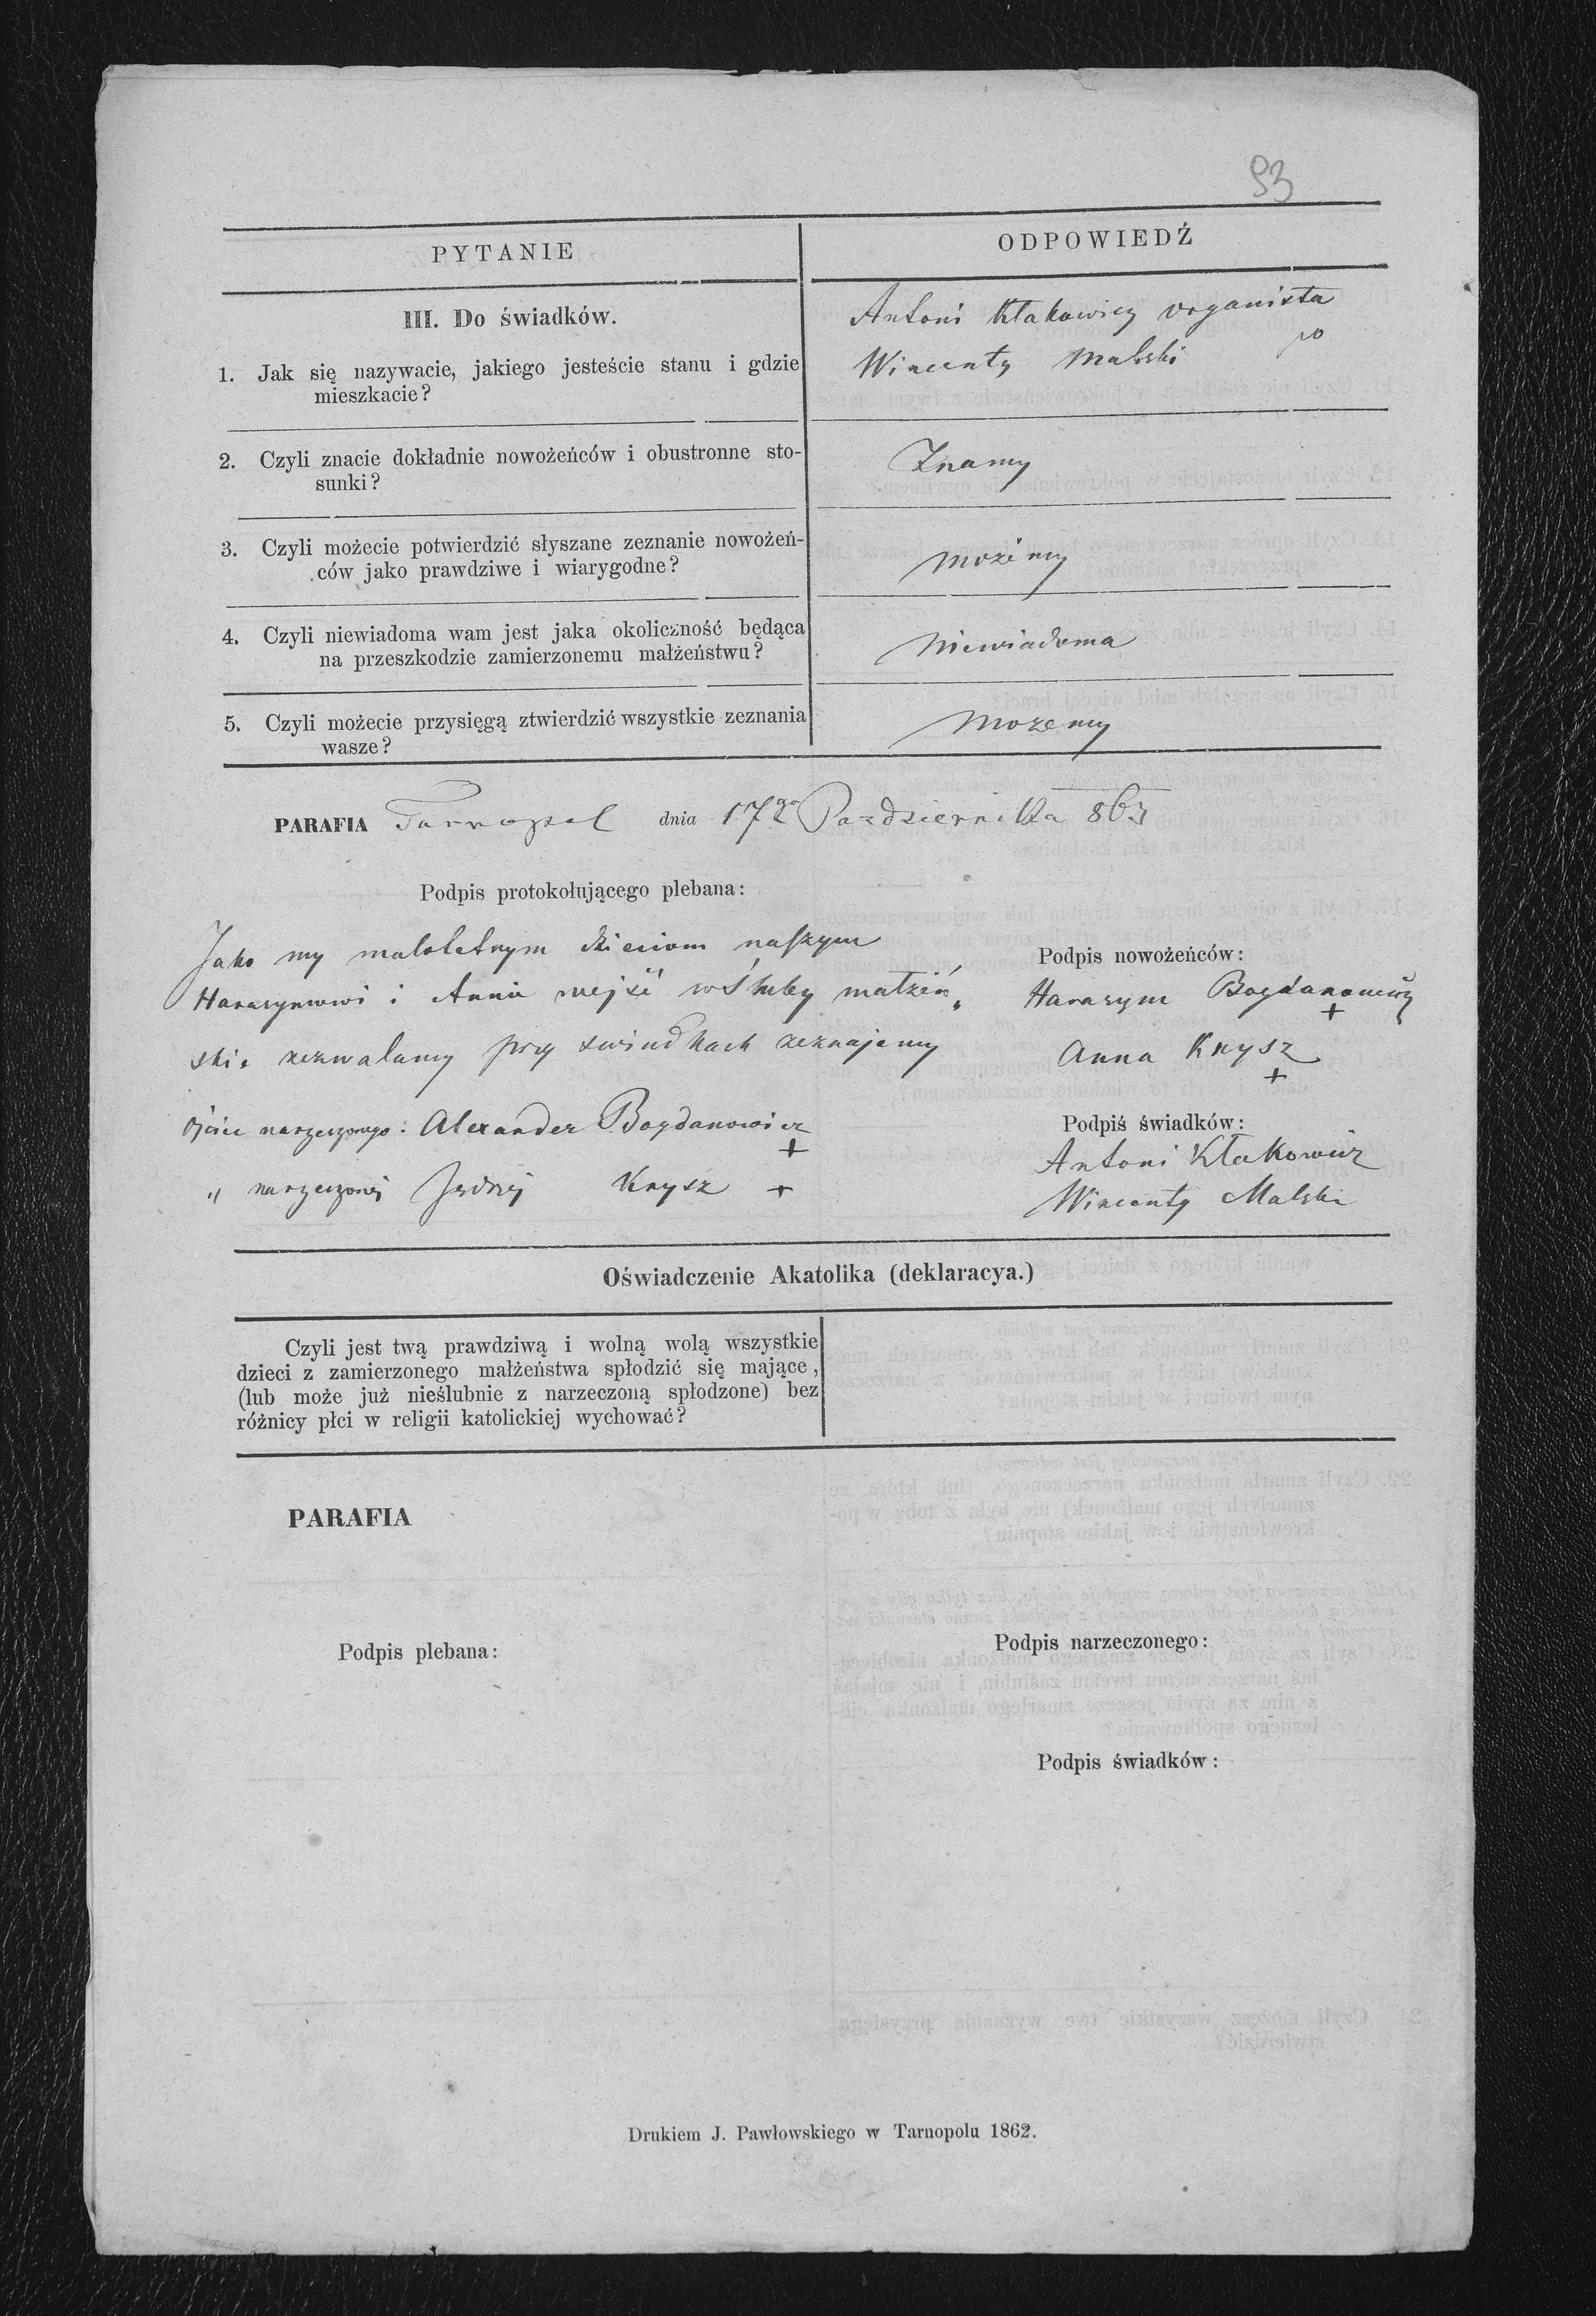 93
PYTANIE
ODPOWIEDŹ
III. Do świadków.
1. Jak się nazywacie, jakiego jesteście stanu i gdzie
mieszkacie?
Antoni Kłakowicz organista
Wincenty Malski
2. Czyli znacie dokładnie nowożeńców i obustronne sto-
sunki?
Znamy
3. Czyli możecie potwierdzić słyszane zeznanie nowożeń-
ców jako prawdziwe i wiarygodne?
możemy
4. Czyli niewiadoma wam jest jaka okoliczność będąca
na przeszkodzie zamierzonemu małżeństwu?
niewiadoma
5. Czyli możecie przysięgą ztwierdzić wszystkie zeznania
wasze?
możemy
PARAFIA Tarnopol dnia 17go Pazdziernika 863
Podpis protokołującego plebana:
Jako my małoletnym dzieciom naszym
Harasymowi i Annie wejść w śluby małżeń„
skie zezwalamy przy świadkach zeznajemy
Ojciec narzeczonego: Alexander Bogdanowicz +
„ narzeczonej Jędrzej Krysz +
Podpis nowożeńców:
Harasym Bogdanowicz +
Anna Krysz +
Podpiś świadków:
Antoni Kłakowicz
Wincenty Malski
Oświadczenie Akatolika (deklaracya.)
Czyli jest twą prawdziwą i wolną wolą wszystkie
dzieci z zamierzonego małżeństwa spłodzić się mające,
(lub może już nieślubnie z narzeczoną spłodzone) bez
różnicy płci w religii katolickiej wychować?
PARAFIA
Podpis plebana:
Podpis narzeczonego:
Podpis świadków:
Drukiem J. Pawłowskiego w Tarnopolu 1862.